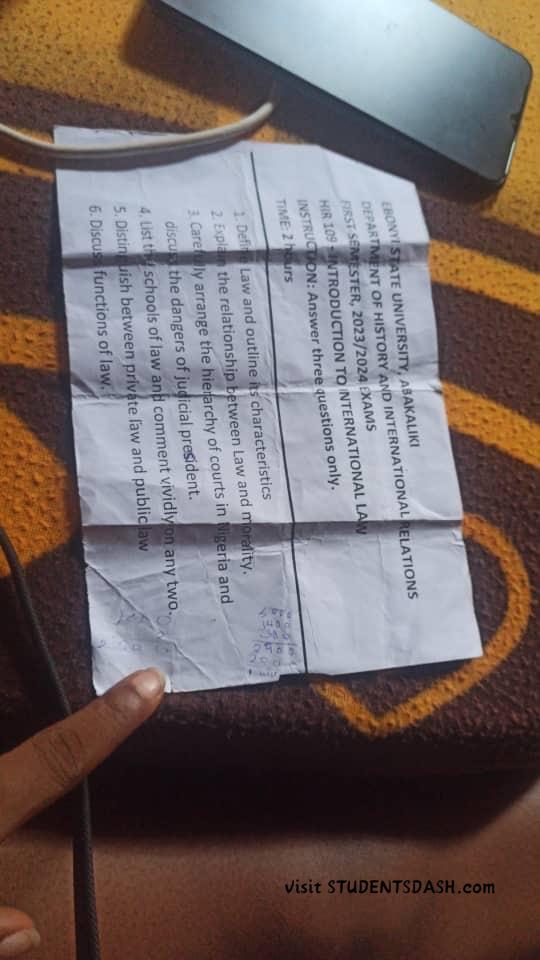 EBONYI STATE UNIVERSITY, ABAKALIKI
DEPARTMENT OF HISTORY AND INTERNATIONAL RELATIONS
FIRST SEMESTER, 2023/2024 EXAMS
HIR 109 - INTRODUCTION TO INTERNATIONAL LAW
INSTRUCTION: Answer three questions only.
TIME: 2 hours
1. Define Law and outline its characteristics
2. Explain the relationship between Law and morality.
3. Carefully arrange the hierarchy of courts in Nigeria and
discuss the dangers of judicial president.
4. List the schools of law and comment vividly on any two.
5. Distinguish between private law and public law
6. Discuss functions of law.
visit STUDENTSDASH.com